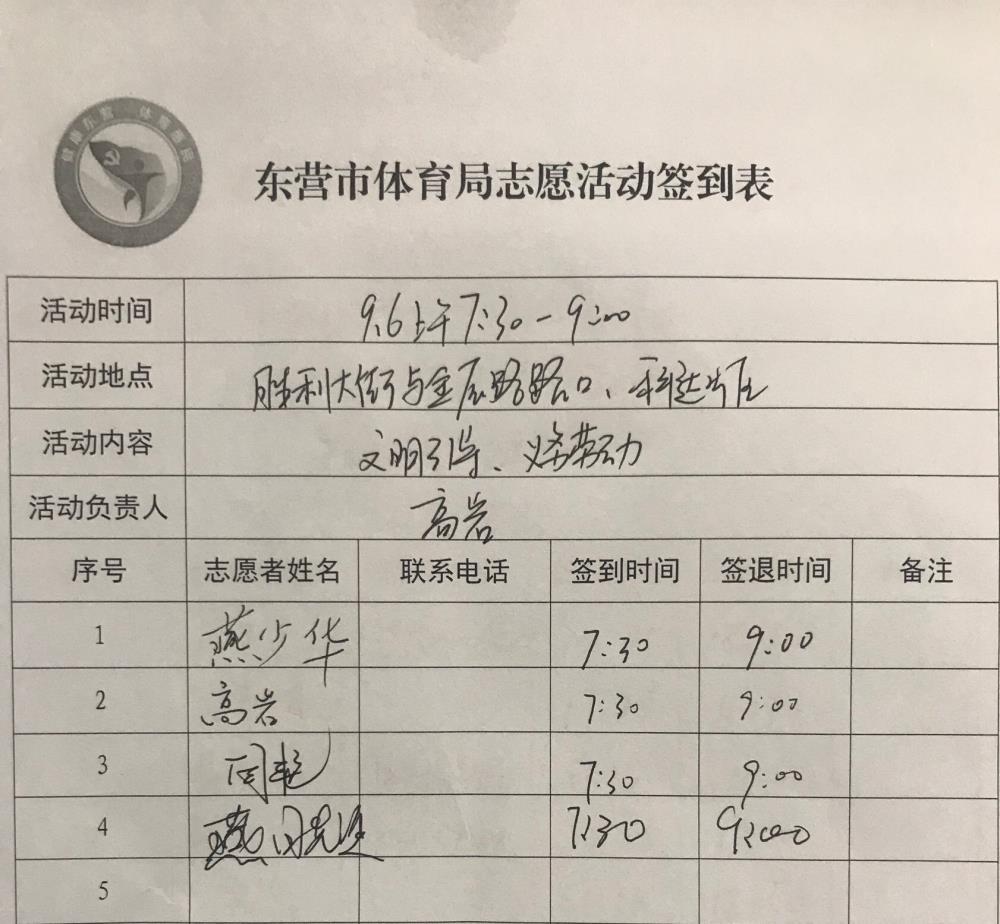 健康东营 体育惠民
东营市体育局志愿活动签到表
活动时间 9.6上午7:30-9:00
活动地点 胜利大街与金辰路路口、科达小区
活动内容 文明引导、义务劳动
活动负责人 高岩
序号 志愿者姓名 联系电话 签到时间 签退时间 备注
1 燕少华 7:30 9:00
2 高岩 7:30 9:00
3 7:30 9:00
4 燕 7:30 9:00
5